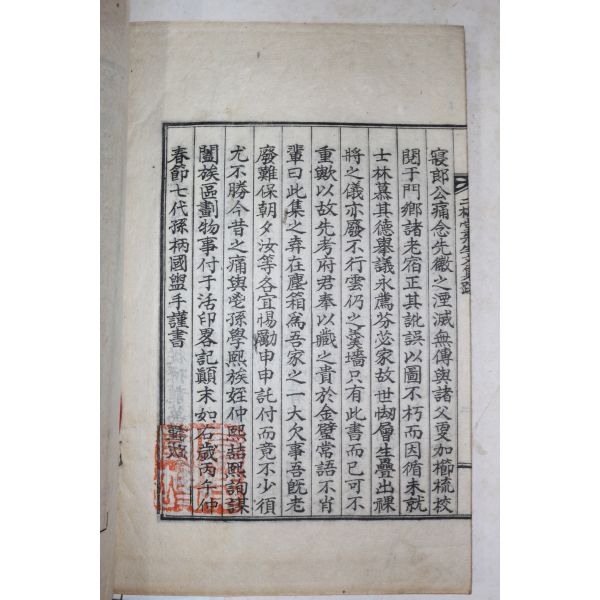 寢郎公痛念先徽之湮滅無傳與諸父更加櫛梳校
閱于門鄉諸老宿正其訛誤以圖不朽而因循未就
士林慕其德舉議永薦芬苾家故世刼層生疊出祼
將之儀亦廢不行雲仍之羹墻只有此書而已可不
重歟以故先考府君奉以藏之貴於金璧常語不肖
輩曰此集之弆在塵箱爲吾家之一大欠事吾旣老
廢難保朝夕汝等各宜惕勵申申託付而竟不少須
尤不勝今昔之痛與孫學熙族姪仲熙喆熙詢謀
闔族區劃物事付于活印畧記顚末如右歲丙午仲
春節七代孫柄國盥手謹書